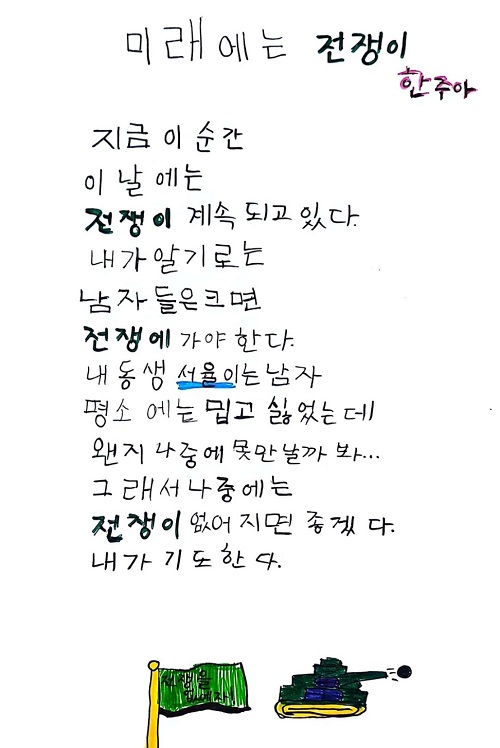 미래에는 전쟁이
한주아
지금 이 순간
이 날에는
전쟁이 계속 되고 있다.
내가 알기로는
남자들은 크면
전쟁에 가야 한다.
내 동생 서율이는 남자
평소에는 밉고 싫었는데
왠지 나중에 못만날까 봐...
그래서 나중에는
전쟁이 없어지면 좋겠다.
내가 기도한다.
전쟁을